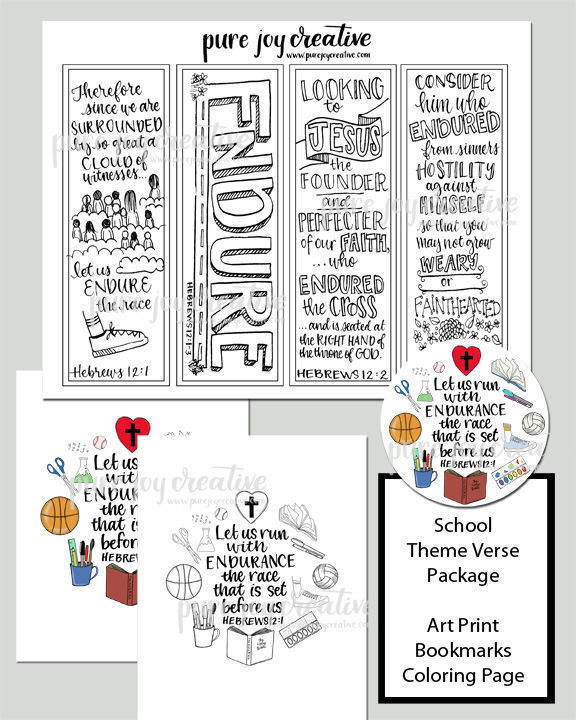 pure joy creative
www.purejoycreative.com
Therefore
since we are
SURROUNDED
by so great a
CLOUD of
witnesses...
let us
ENDURE
the race
Hebrews 12:1
ENDURE
HEBREWS 12:1-3
LOOKING
to
JESUS
the
FOUNDER
and
PERFECTER
of our FAITH,
...who
ENDURED
the CROSS
...and is seated at
the RIGHT HAND of
the throne of GOD.
HEBREWS 12:2
CONSIDER
him who
ENDURED
from sinners
HOSTILITY
against
HIMSELF
so that you
may not grow
WEARY
or
FAINTHEARTED
pure joy creative
www.purejoycreative.com
pure joy creative
pure joy creative
Let us run
with
ENDURANCE
the race
that is set
before us
HEBREWS 12:1
Let us
with
ENDUR
the
that is
before
HEBREWS
pure joy creative
www.purejoycreative.com
Let us run
with
ENDURANCE
the race
that is set
before us
HEBREWS 12:1
pure joy creative
www.purejoycreative.com
School
Theme Verse
Package
Art Print
Bookmarks
Coloring Page